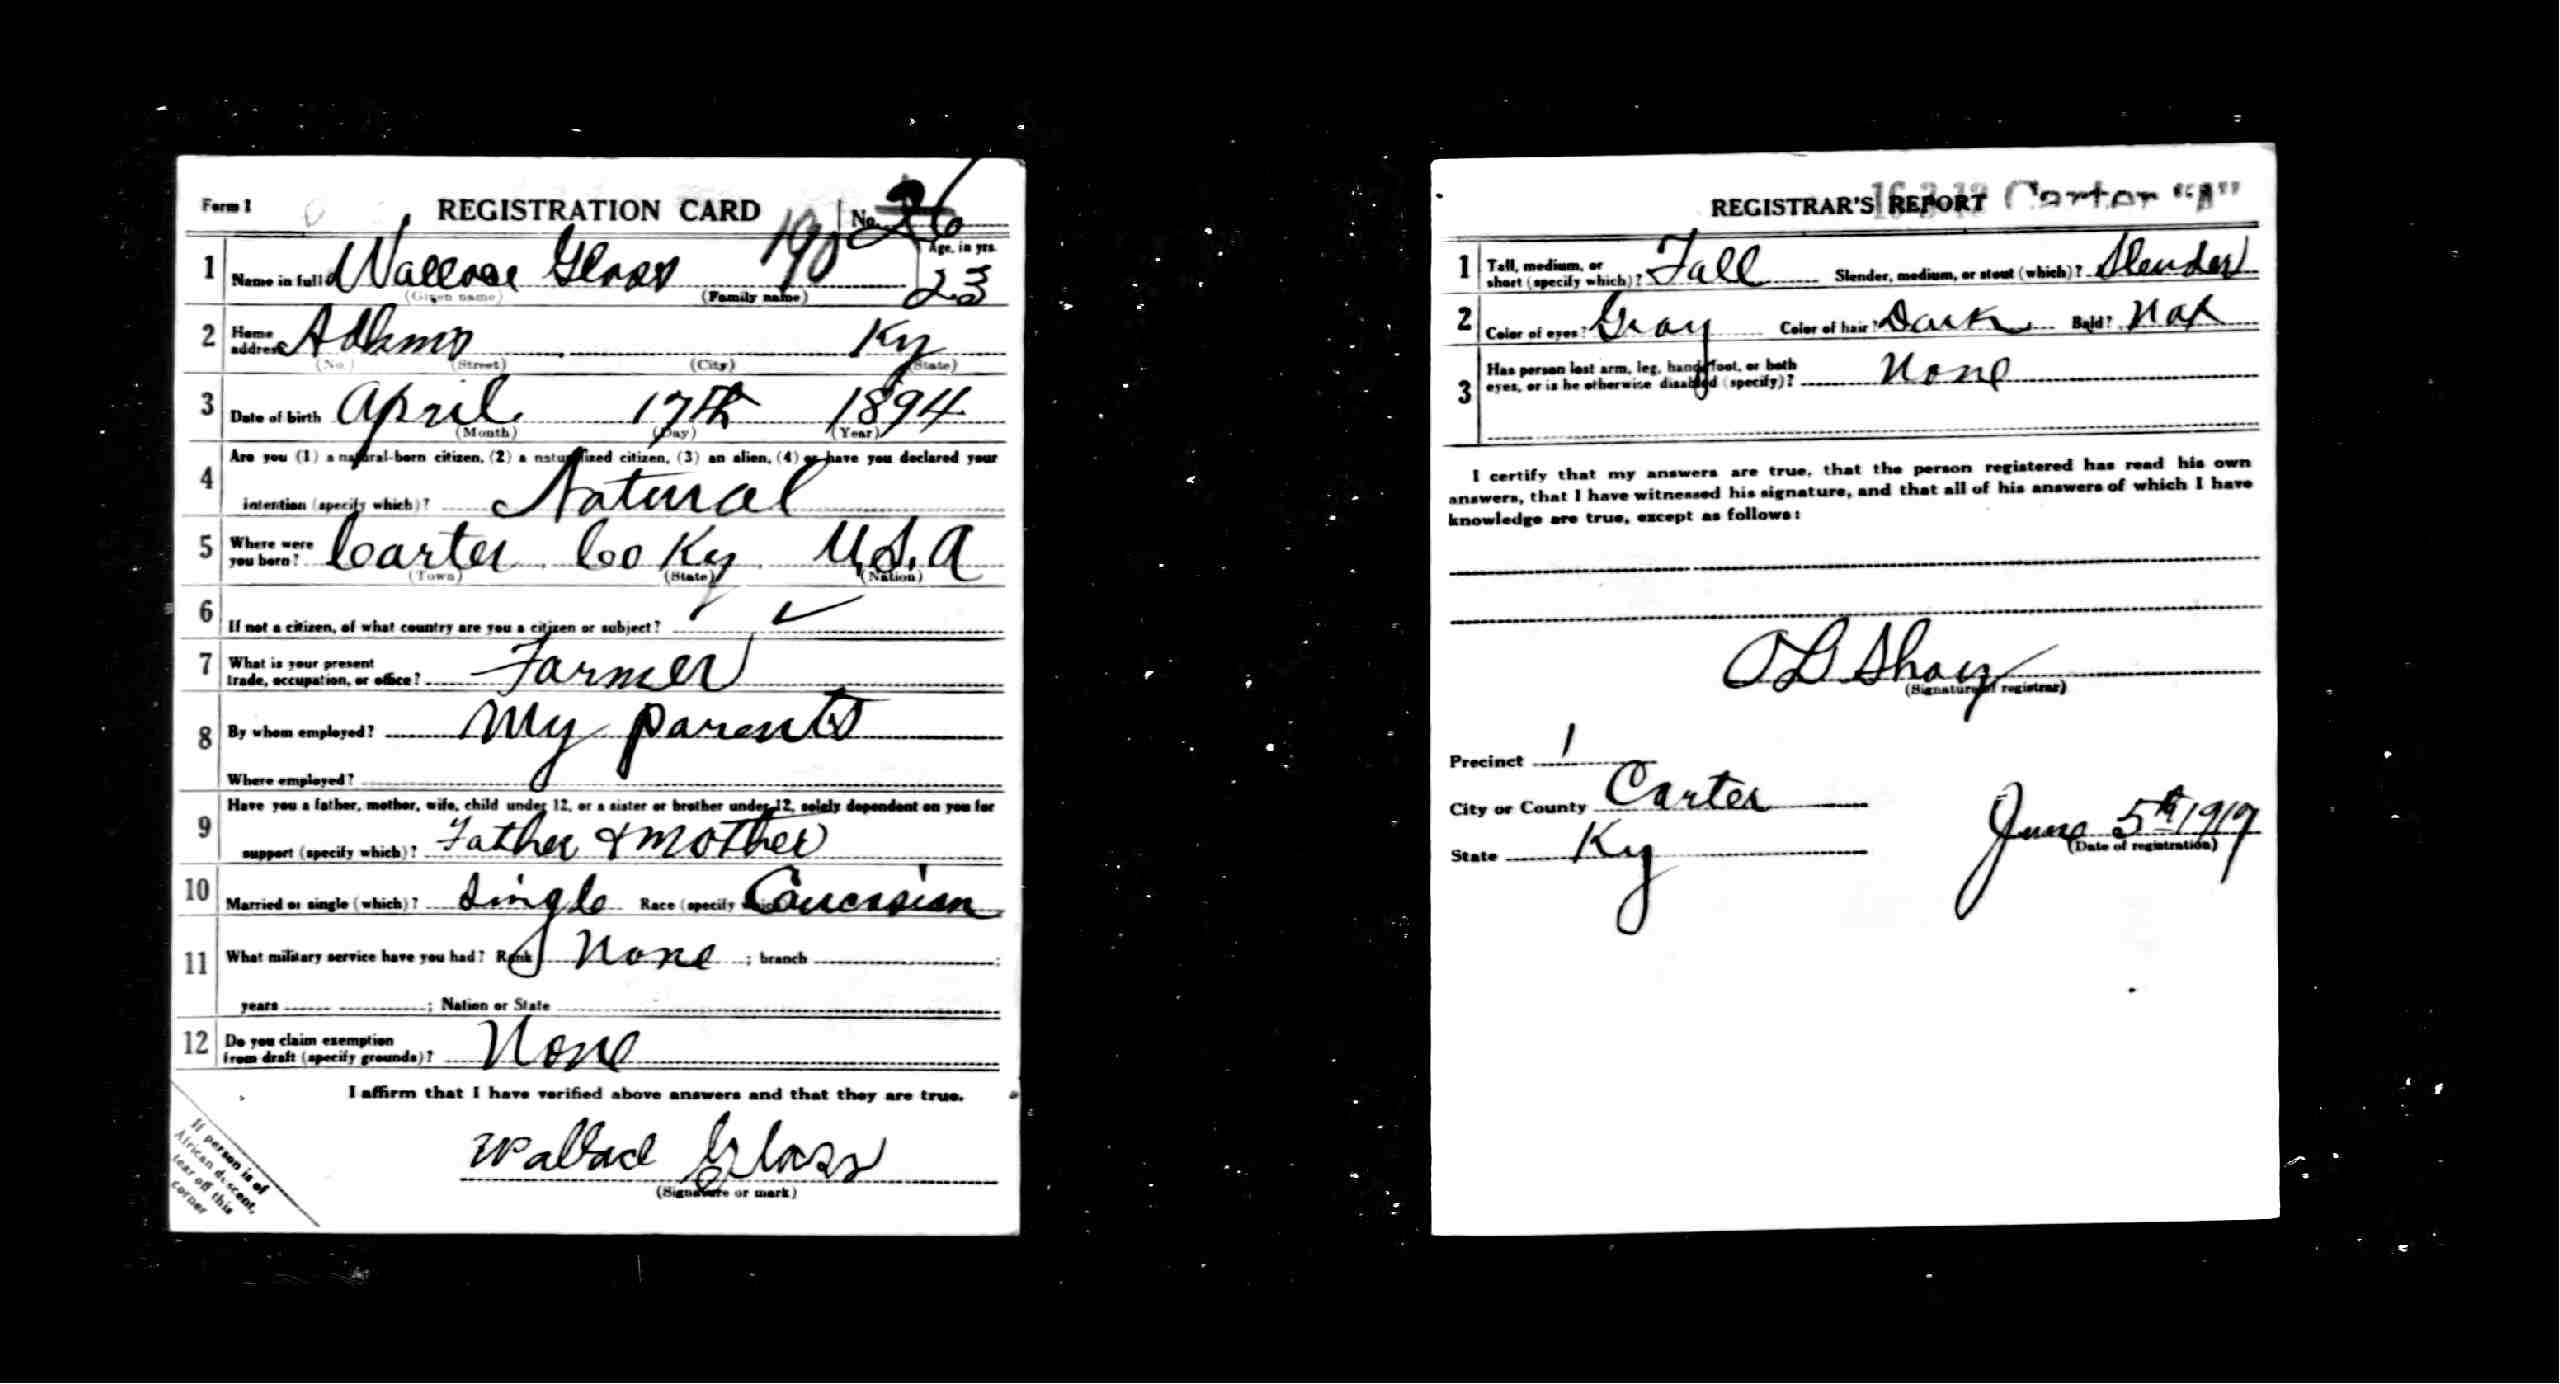 Form 1 REGISTRATION CARD No. 26
1 Name in full Wallace Glass 190 Age, in yrs.
(Given name) (Family name) 23
2 Home address Ky
(No.) (Street) (City) (State)
3 Date of birth April 17th 1894
(Month) (Day) (Year)
4 Are you (1) a natural-born citizen, (2) a naturalized citizen, (3) an alien, (4) or have you declared your
intention (specify which)? Natural
5 Where were you born? Carter Co Ky U.S.A
(Town) (State) (Nation)
6 If not a citizen, of what country are you a citizen or subject? ✓
7 What is your present
trade, occupation, or office? Farmer
8 By whom employed? My parents
Where employed?
9 Have you a father, mother, wife, child under 12, or a sister or brother under 12, solely dependent on you for
support (specify which)? Father & Mother
10 Married or single (which)? Single Race (specify which)? Caucasian
11 What military service have you had? Rank None ; branch ;
years ; Nation or State
12 Do you claim exemption
from draft (specify grounds)? None
I affirm that I have verified above answers and that they are true.
Wallace Glass
(Signature or mark)
If person is of
African descent,
tear off this
corner
REGISTRAR'S REPORT Carter "A"
1 Tall, medium, or
short (specify which)? Tall Slender, medium, or stout (which)? Slender
2 Color of eyes? Gray Color of hair? Dark Bald? Not
3 Has person lost arm, leg, hand, foot, or both
eyes, or is he otherwise disabled (specify)? None
I certify that my answers are true, that the person registered has read his own
answers, that I have witnessed his signature, and that all of his answers of which I have
knowledge are true, except as follows:
(Signature of registrar)
Precinct 1
City or County Carter
State Ky June 5th 1917
(Date of registration)